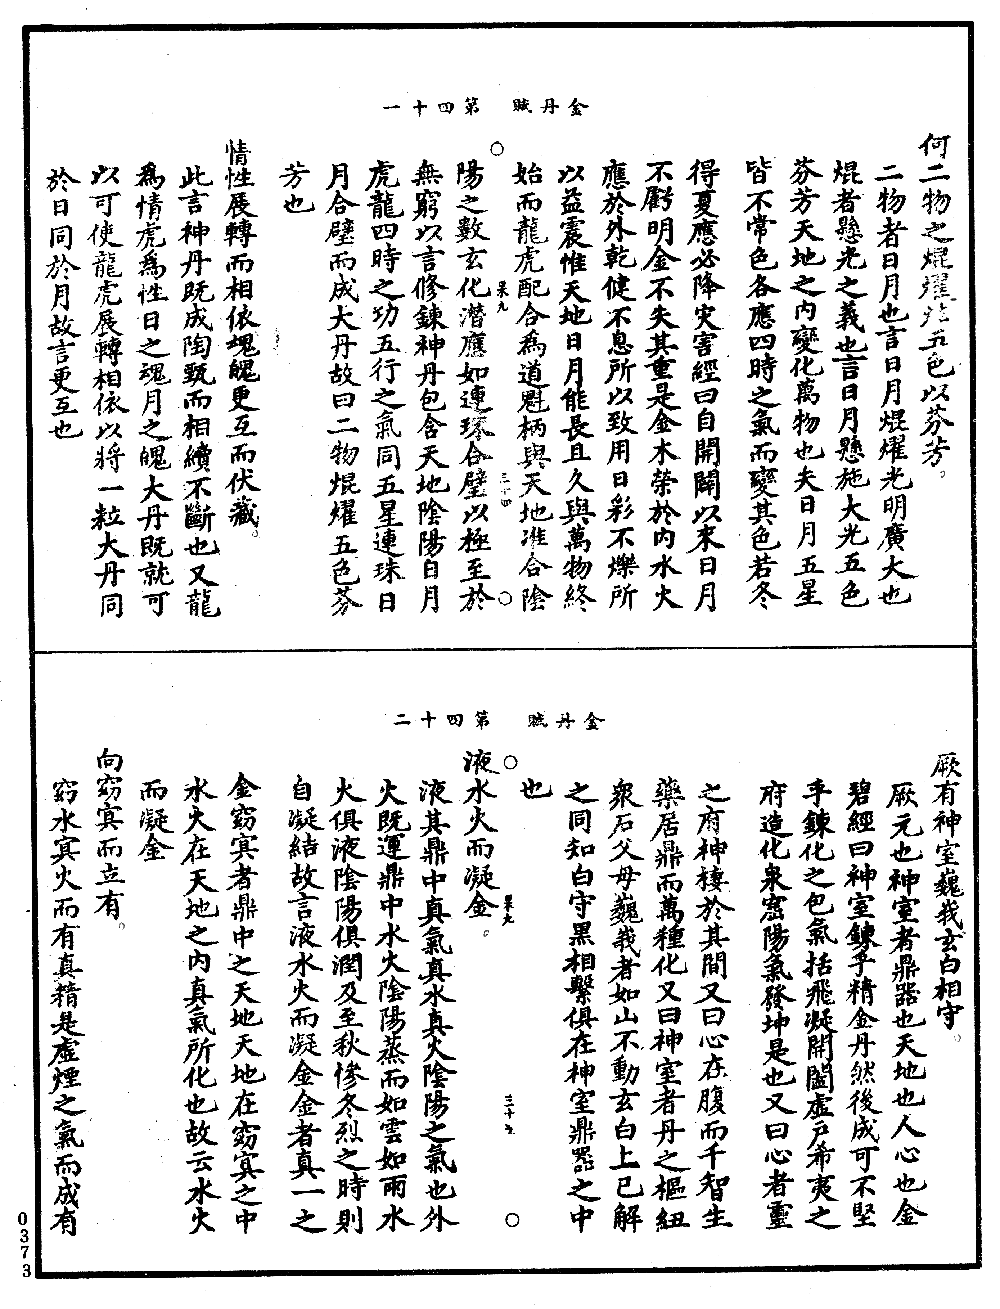 金丹賦　第四十一
何二物之焜燿茫五色以芬芳。
二物者日月也言日月焜燿光明廣大也
焜者懸光之義也言日月懸施大光五色
芬芳天地之內變化萬物也夫日月五星
皆不常色各應四時之氣而變其色若冬
得夏應必降灾害經曰自開闢以來日月
不虧明金不失其重是金木榮於內水火
應於外乾健不息所以致用日彩不爍所
以益震惟天地日月能長且久與萬物終
始而龍虎配合為道魁柄與天地准合陰
果九
三十四
陽之數玄化潛應如連珠合璧以極至於
無窮以言修鍊神丹包含天地陰陽日月
虎龍四時之功五行之氣同五星連珠日
月合璧而成大丹故曰二物焜燿五色芬
芳也
情性展轉而相依魂魄更互而伏藏。
此言神丹既成陶甄而相續不斷也又龍
為情虎為性日之魂月之魄大丹既就可
以可使龍虎展轉相依以將一粒大丹同
於日同於月故言更互也
金丹賦　第四十二
厥有神室巍峩玄白相守。
厥元也神室者鼎器也天地也人心也金
碧經曰神室鍊乎精金丹然後成可不堅
乎鍊化之包氣括飛凝開闔虛戶希夷之
府造化泉窟陽氣發坤是也又曰心者靈
之府神棲於其間又曰心在腹而千智生
藥居鼎而萬種化又曰神室者丹之樞紐
衆石父母巍峩者如山不動玄白上已解
之同知白守黑相繫俱在神室鼎器之中
也
果九
三十五
液水火而凝金。
液其鼎中真氣真水真火陰陽之氣也外
火既運鼎中水火陰陽蒸而如雲如雨水
火俱液陰陽俱潤及至秋慘冬烈之時則
自凝結故言液水火而凝金金者真一之
金窈冥者鼎中之天地天地在窈冥之中
水火在天地之內真氣所化也故云水火
而凝金
向窈冥而立有。
窈水冥火而有真精是虛煙之氣而成有
0373